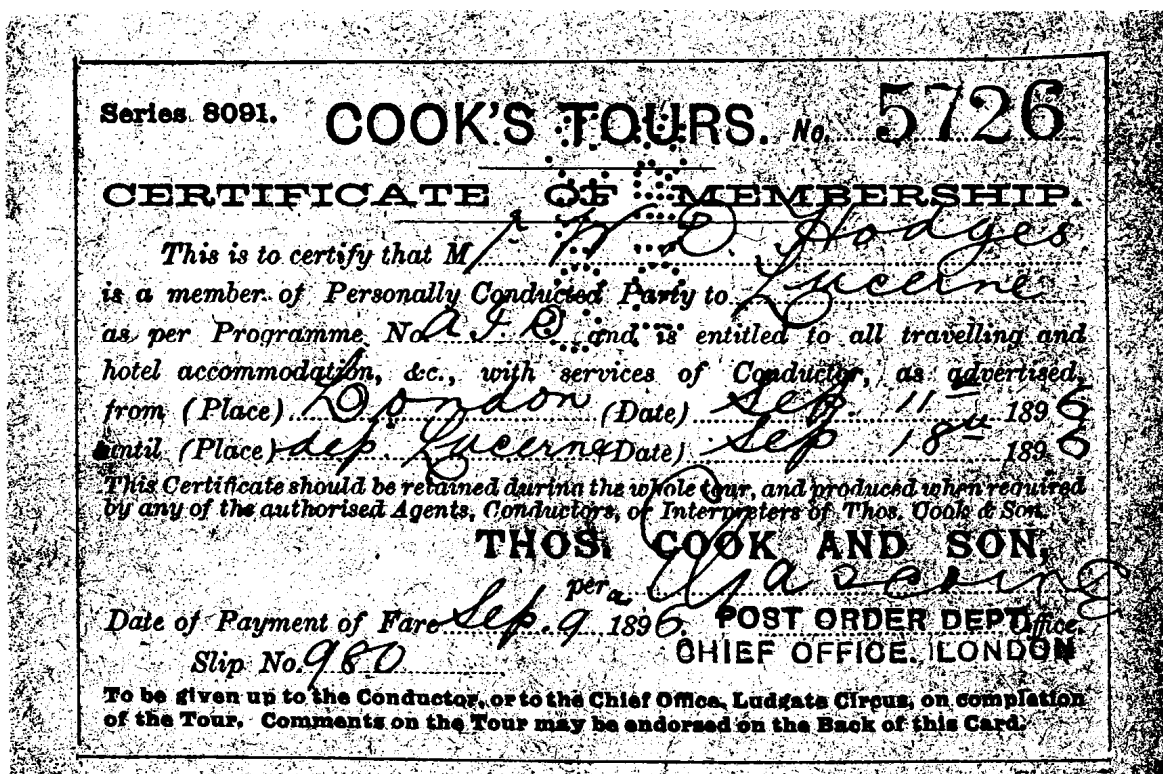 Series 8091. COOK'S TOURS. No. 5726
CERTIFICATE OF MEMBERSHIP.
This is to certify that Mr W D Hodges
is a member of Personally Conducted Party to Lucerne
as per Programme No and is entitled to all travelling and
hotel accommodation, &c., with services of Conductor, as advertised,
from (Place) London (Date) Sep. 11th 1896
until (Place) dep. Lucerne (Date) Sep 18th 1896
This Certificate should be retained during the whole tour, and produced when required
by any of the authorised Agents, Conductors, or Interpreters of Thos. Cook & Son.
THOS. COOK AND SON,
per
Date of Payment of Fare Sep. 9 1896. POST ORDER DEPT. Office.
Slip No. 980 CHIEF OFFICE. LONDON
To be given up to the Conductor, or to the Chief Office, Ludgate Circus, on completion
of the Tour. Comments on the Tour may be endorsed on the Back of this Card.